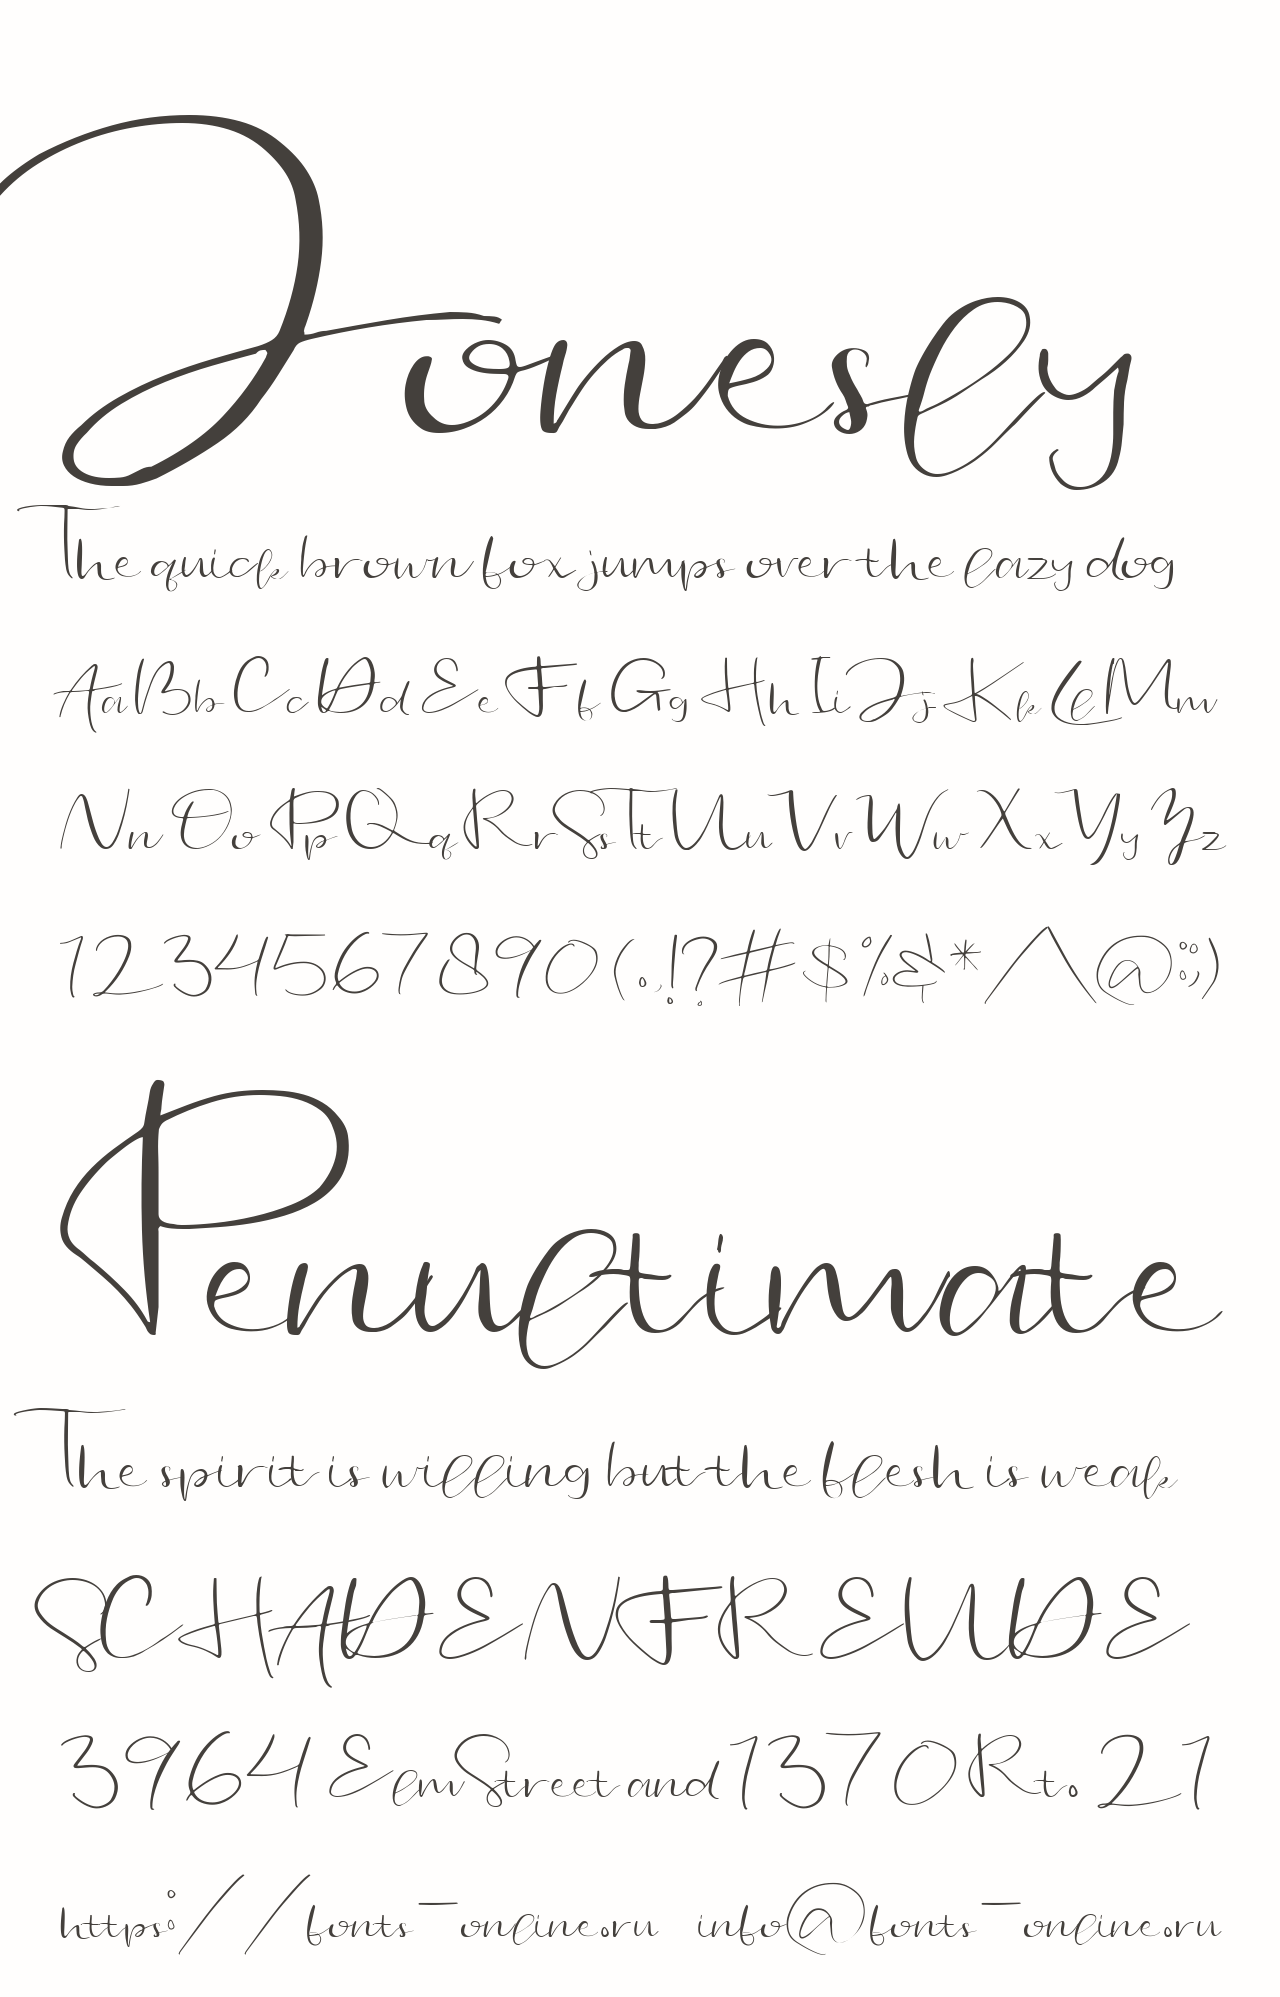 Jonesly
The quick brown fox jumps over the lazy dog
Aa Bb Cc Dd Ee Ff Gg Hh Ii Jj Kk Ll Mm
Nn Oo Pp Qq Rr Ss Tt Uu Vv Ww Xx Yy Zz
1234567890(.,!?#$%&*/\@:;)
Penultimate
The spirit is willing but the flesh is weak
SCHADENFREUDE
3964 Elm Street and 1370 Rt. 21
https://fonts-online.ru info@fonts-online.ru